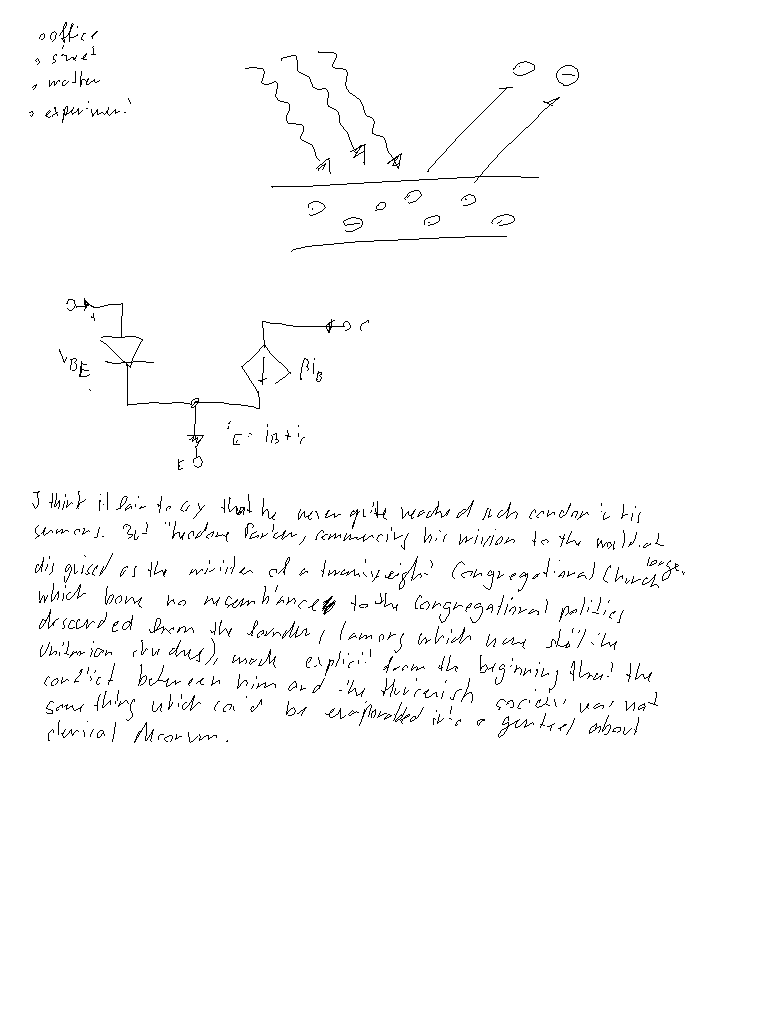 office
street
matter
experiment
C
VBE
βiB
iE = iB + iC
E
I think it fair to say that he never quite reached such candor in his
sermons. But Theodore Parker, commencing his mission to the world at
large,
disguised as the minister of a Congregational Church
which bore no resemblance to the Congregational polities
descended from the founders, (among which were still the
Unitarian churches), made explicit from the beginning that the
conflict between him and the society was not
something which could be evaporated into a genteel about
clerical decorum.